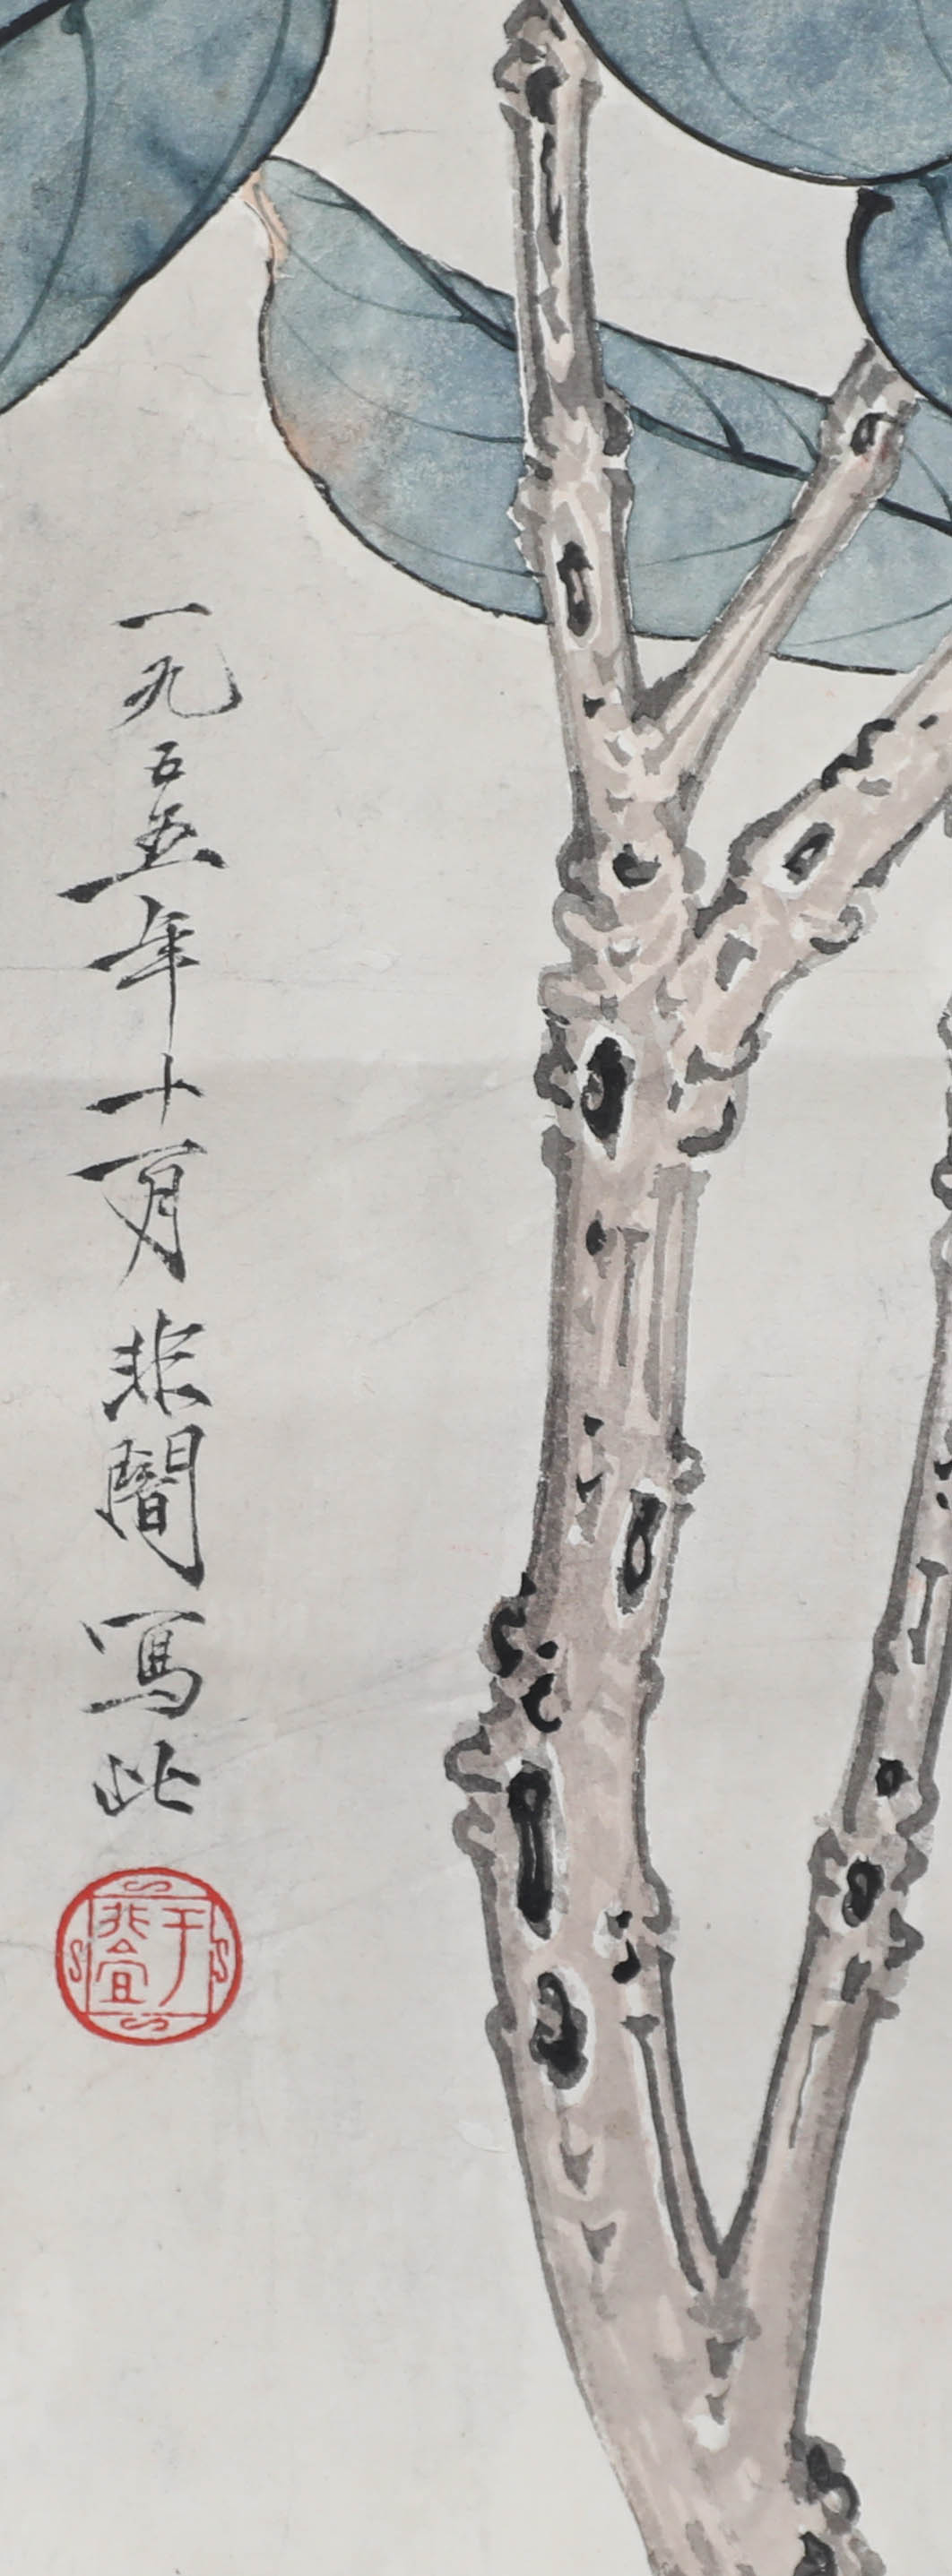 一九五五年十月非闇寫此
于非闇